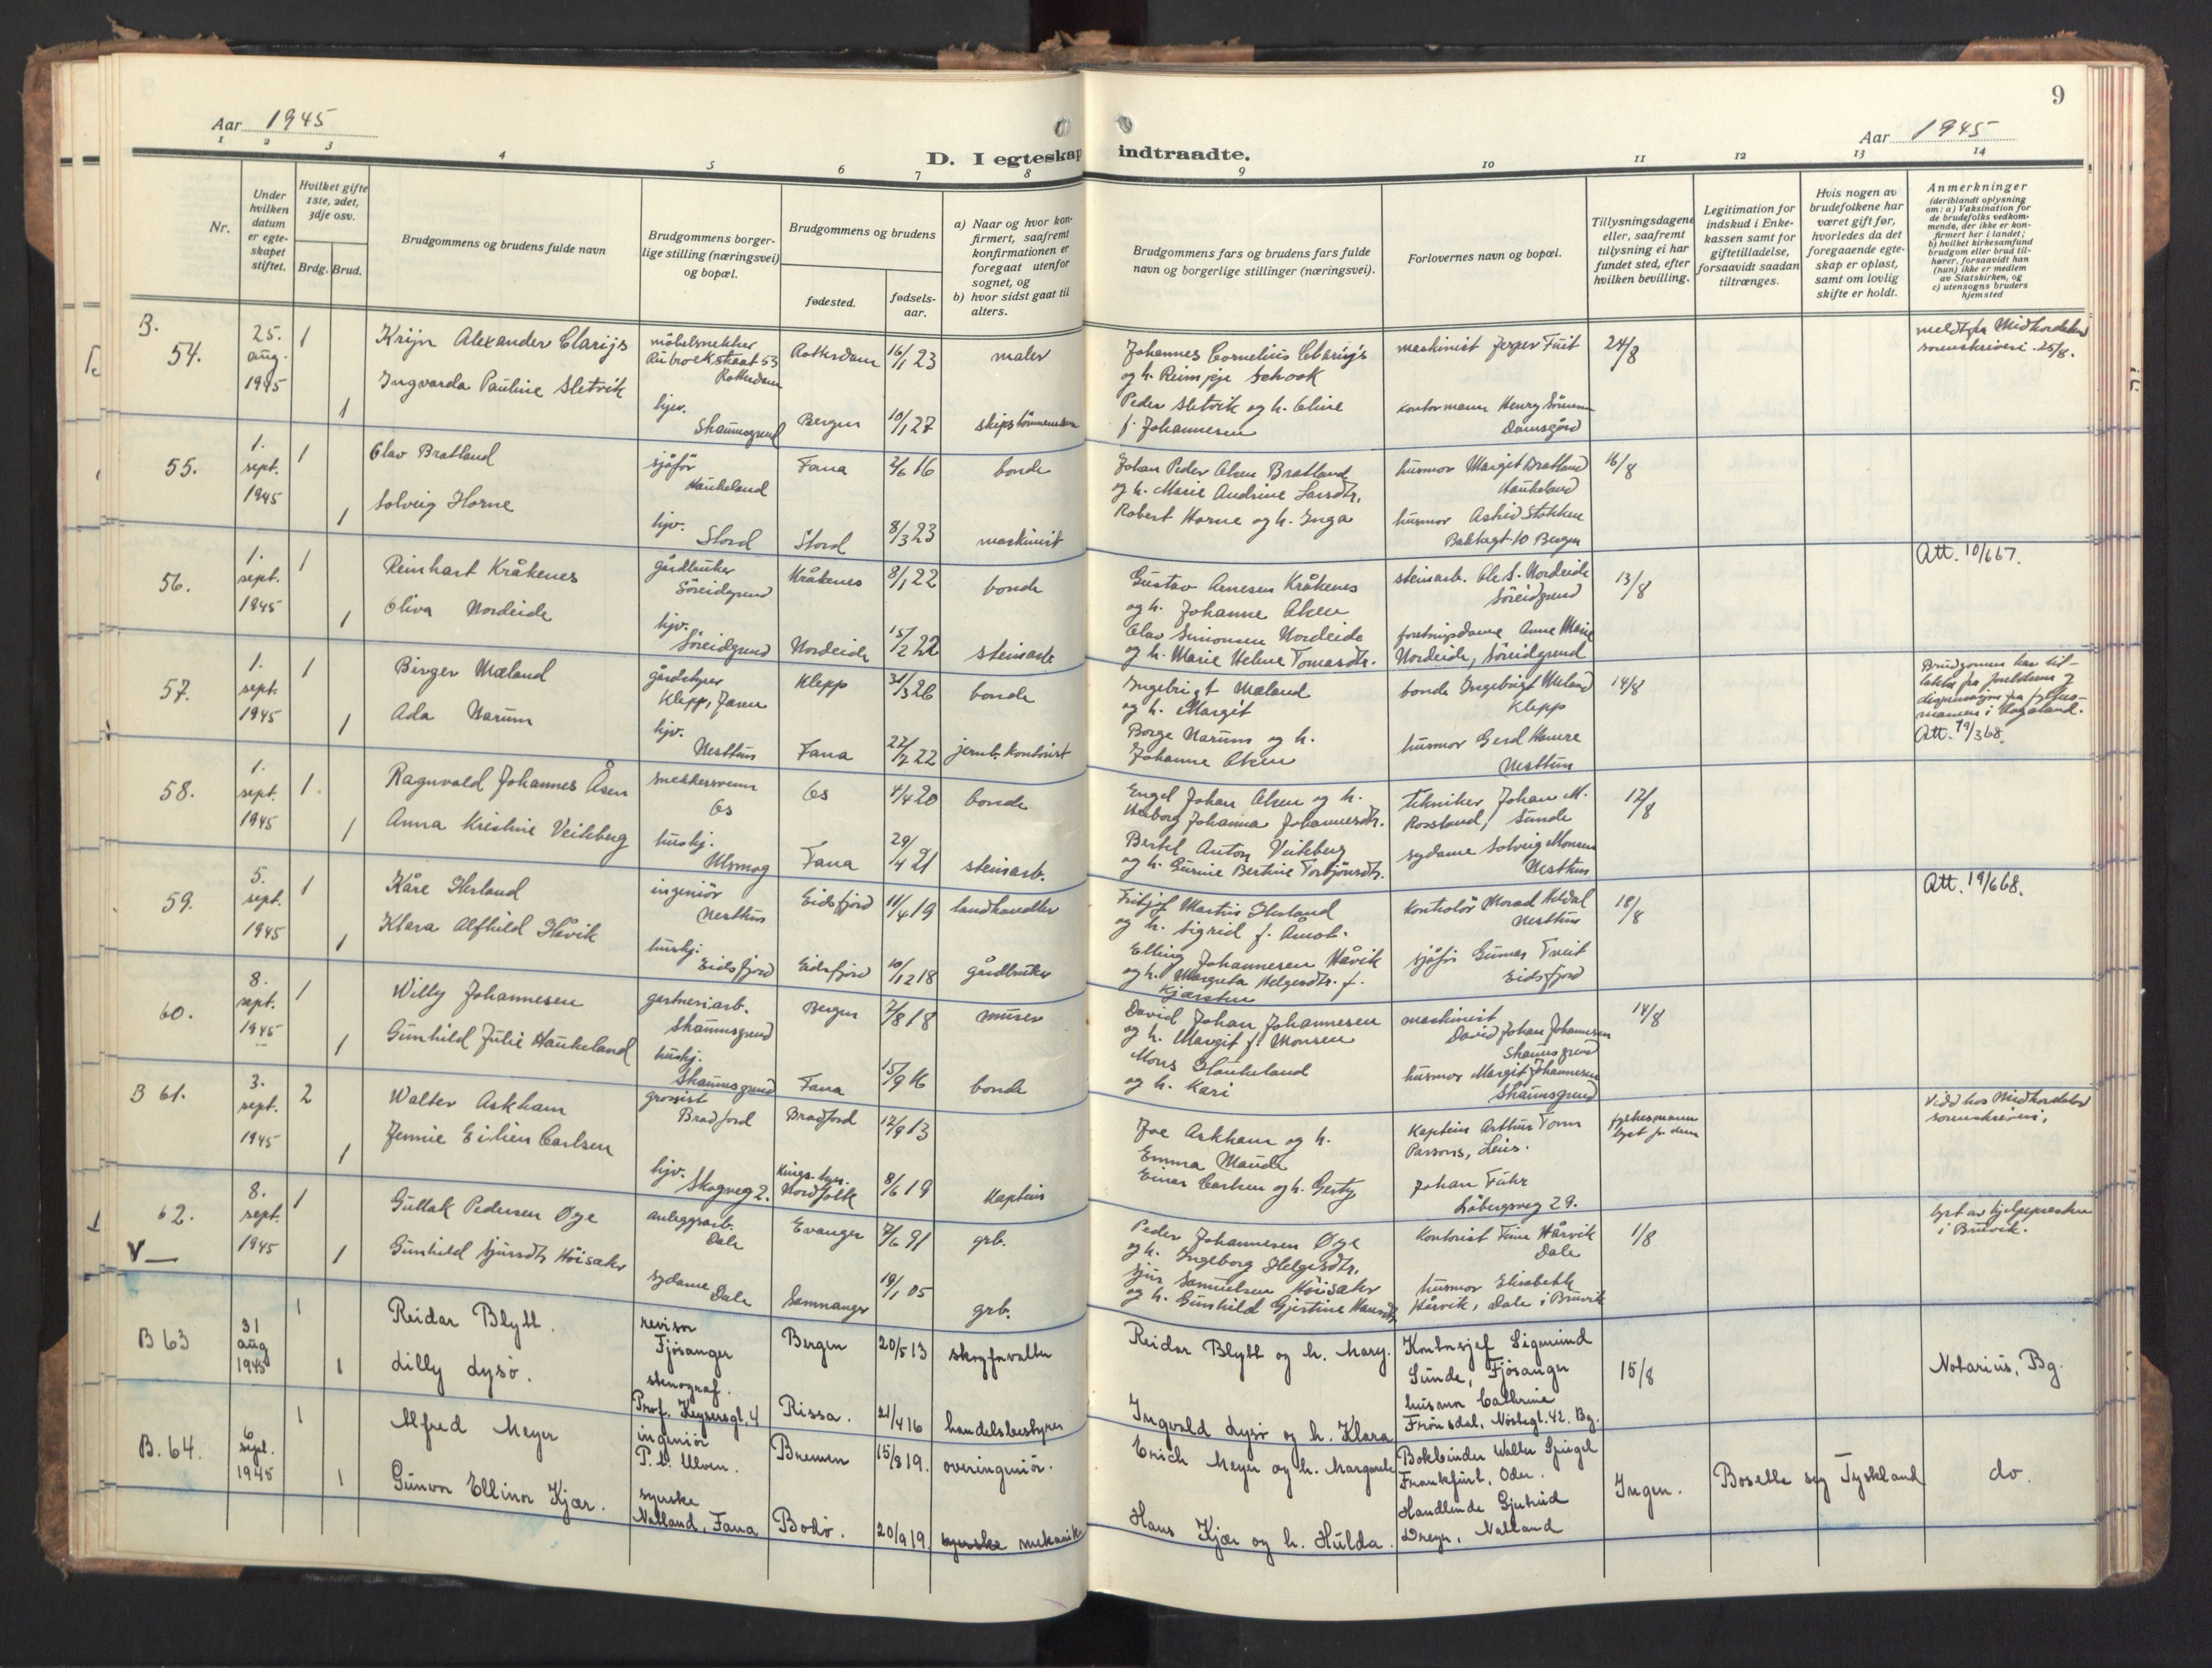 9
Aar 1945
Aar 1945
D. I egteskap indtraadte.
1 2 3 4 5 6 7 8 9 10 11 12 13 14
Nr.
Under hvilken datum er egteskapet stiftet.
Hvilket gifte 1ste, 2det, 3dje osv.
Brdg. Brud.
Brudgommens og brudens fulde navn
Brudgommens borgerlige stilling (næringsvei) og bopæl.
Brudgommens og brudens
fødested.
fødselsaar.
a) Naar og hvor konfirmert, saafremt konfirmationen er foregaat utenfor sognet, og
b) hvor sidst gaat til alters.
Brudgommens fars og brudens fars fulde navn og borgerlige stillinger (næringsvei).
Forlovernes navn og bopæl.
Tillysningsdagene eller, saafremt tilysning ei har fundet sted, efter hvilken bevilling.
Legitimation for indskud i Enkekassen samt for giftetilladelse, forsaavidt saadan tiltrænges.
Hvis nogen av brudefolkene har været gift før, hvorledes da det foregaaende egteskap er opløst, samt om lovlig skifte er holdt.
Anmerkninger
(deriblandt oplysning om: a) Vaksination for de brudefolks vedkommende, der ikke er konfirmert her i landet; b) hvilket kirkesamfund brudgom eller brud tilhører, forsaavidt han (hun) ikke er medlem av Statskirken, og c) utensogns bruders hjemsted
B. 54. 25. aug. 1945 1 Krijn Alexander Clarijs møbelsnekker Rubroekstraat 53 Rotterdam Rotterdam 16/1 23 maler
Johannes Cornelius Clarijs og h. Reimpje Schook maskinist Jesper Fuit 24/8 meldt fra Midhordaland sorenskriveri 25/8.
1 Ingvarda Pauline Sletvik hjv. Skaunsgrend Bergen 10/1 27 skipstømmermann
Peder Sletvik og h. Oline f. Johannesen kontormann Henry Damsgård
55. 1. sept. 1945 1 Olav Bratland sjåfør Haukeland Fana 2/6 16 bonde
Johan Peder Olsen Bratland og h. Marie Andrine Larsdtr. husmor Margit Bratland Haukeland 16/8
1 Solveig Horne hjv. Stord Stord 8/3 23 maskinist
Robert Horne og h. Inga husmor Astrid Stokken 10 Bergen
56. 1. sept. 1945 1 Reinhart Kråkenes gårdbruker Søreidgrend Kråkenes 8/1 22 bonde
Gustav Arnesen Kråkenes og h. Johanne Olsen steinarb. Ole S. Nordeide Søreidgrend 13/8 Att. 10/6 67.
1 Oliva Nordeide hjv. Søreidgrend Nordeide 15/2 22 steinarb
Olav Simonsen Nordeide og h. Marie Helene Tomasdtr. Anne Marie Nordeide, Søreidgrend
57. 1. sept. 1945 1 Birger Mæland Klepp, Jæren Klepp 31/3 26 bonde
Ingebrigt Mæland og h. Margit bonde Ingebrigt Mæland Klepp 14/8 Brudgomen har fra foreldrene i Rogaland. Att. 19/3 68.
1 Ada Narum hjv. Nesttun Fana 22/7 22 jernb. kontorist
Borge Narum og h. Johanne Olsen husmor Gerd Haure Nesttun
58. 1. sept. 1945 1. Ragnvald Johannes Åsen snekkersvenn Os Os 4/4 20 bonde
Engel Johan Olsen og h. Johanna Johannesdtr. tekniker Johan M. Rossland, Sunde 12/8
1 Anna Kristine Veiteberg hushj. Ulsmåg Fana 29/4 21 steinarb.
Bertel Anton Veiteberg og h. Gurine Bertine Torbjørnsdtr. sydame Solveig Monsen Nesttun
59. 5. sept. 1945 1 Kåre Herland ingeniør Nesttun Eidsfjord 11/4 19 landhandler
Fritjof Martin Herland og h. Sigrid f. Åmot. kontrolør Nesttun 18/8 Att. 19/6 68.
1 Klara Alfhild Håvik hushj. Eidsfjord Eidsfjord 10/12 18 gårdbruker
Elling Johannesen Håvik og h. Margreta Helgesdtr. f. sjåfør Gunnar Tveit Eidsfjord
60. 8. sept. 1945 1 Willy Johannesen gartneriarb. Skaunsgrend Bergen 7/8 18 murer
David Johan Johannesen og h. Margit f. Monsen maskinist David Johan Johannesen Skaunsgrend 14/8
1 Gunhild Julie Haukeland hushj. Skaunsgrend Fana 15/9 16 bonde
Mons Haukeland og h. Kari husmor Margit Johannesen Skaunsgrend
B 61. 3. sept. 1945 2 Walter Askham grossist Bradford Bradford 12/9 13
Joe Askham og h. Emma Maude Kaptein Arthur Tom Parsons, fylkesmann Vidd hos Midhordaland sorenskriveri,
1 Jennie Eirlien Carlsen hjv. Skogveg 2. Nordfolk 8/6 19 kaptein
Einar Carlsen og h. Gerty Johan Führ Løbergsveg 29.
62. 8. sept. 1945 1 Gullak Pedersen Øye anleggsarb. Dale Evanger 7/6 91 grb.
Peder Johannesen Øye og h. Ingeborg Helgesdtr. kontorist Finn Hårvik Dale 1/8 lyst av hjelpepresten i Bruvik.
V 1 Gunhild Sjursdtr Høisæter sydame Dale Samnanger 19/1 05 grb.
Sjur Samuelsen Høisæter og h. Gunhild Gjertine Hansdtr. husmor Elisabeth Hårvik, Dale i Bruvik
B 63 31 aug 1945 1 Reidar Blytt. revisor Fjøsanger Bergen 20/5 13 skogforvalter
Reidar Blytt og h. Mary. Kontorsjef Sigmund Sunde, Fjøsanger 15/8 Notarius, Bg.
1 Lilly Lysø. stenograf. Prof. Keysersgt. 4 Rissa. 21/4 16 handelsbestyrer
Ingvald Lysø og h. Klara husmor Cathrine Frønsdal, Nøstegt. 42. Bg.
B. 64. 6 sept. 1945 1 Alfred Meyer ingeniør P.t. Ulven. Bremen 15/8 19. overingeniør.
Erich Meyer og h. Margarete Bokbinder Walter Spiegel Frankfurt, Oder. Ingen. Bosette seg Tyskland do.
1 Gunvor Ellinor Kjær. syerske Natland, Fana Bodø. 20/9 19. syerske mekanik
Hans Kjær og h. Hulda. Handlende Gjertrud Natland